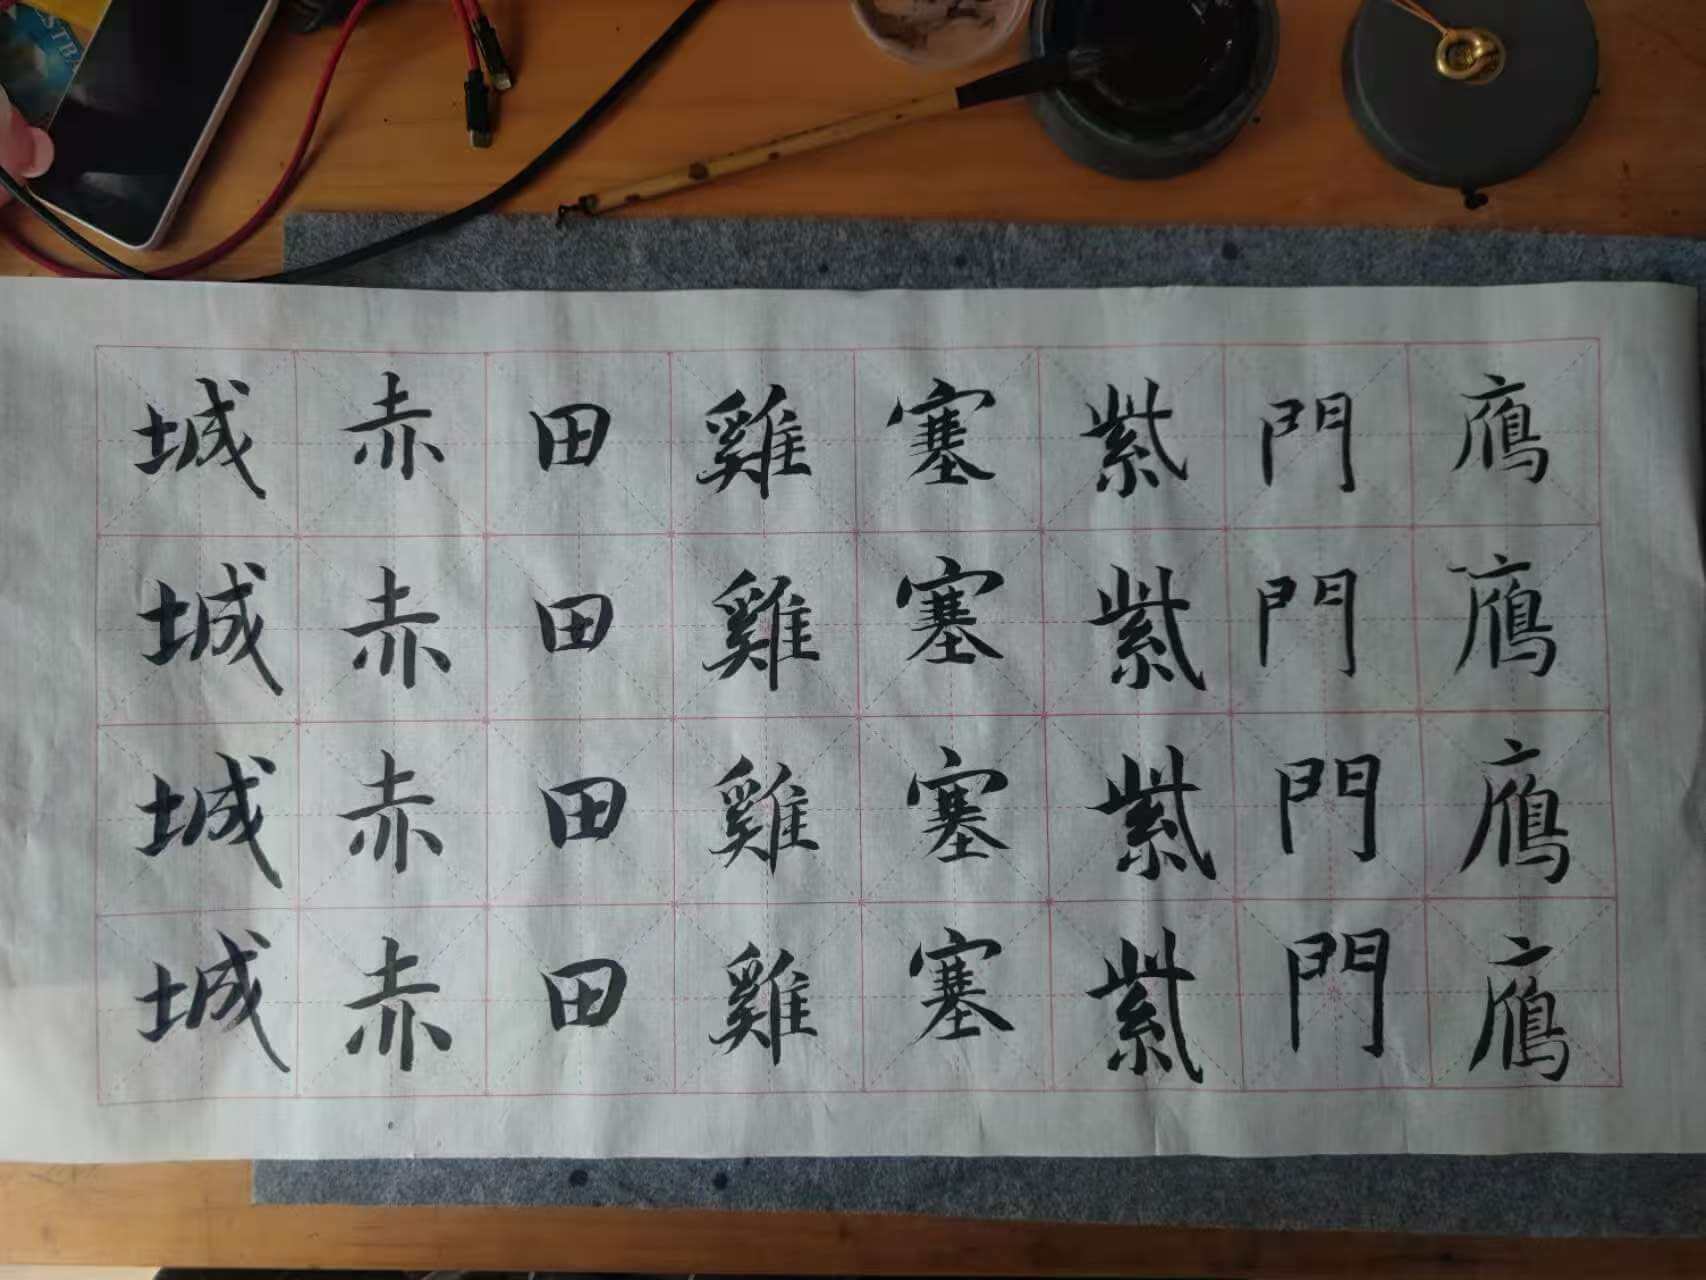 鴈鴈鴈鴈
門門門門
紫紫紫紫
塞塞塞塞
雞雞雞雞
田田田田
赤赤赤赤
城城城城